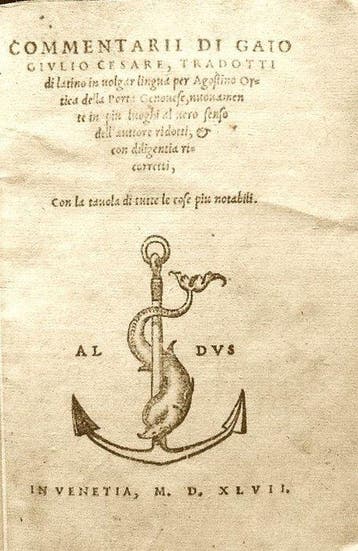 COMMENTARII DI GAIO
GIVLIO CESARE, TRADOTTI
di latino in volgar lingua per Agostino Or-
tica della Porta Genouese, nuouamen
te in piu luoghi al uero senso
dell'auttore ridotti, &
con diligentia ri-
corretti,
Con la tauola di tutte le cose piu notabili.
AL DVS
IN VENETIA, M. D. XLVII.